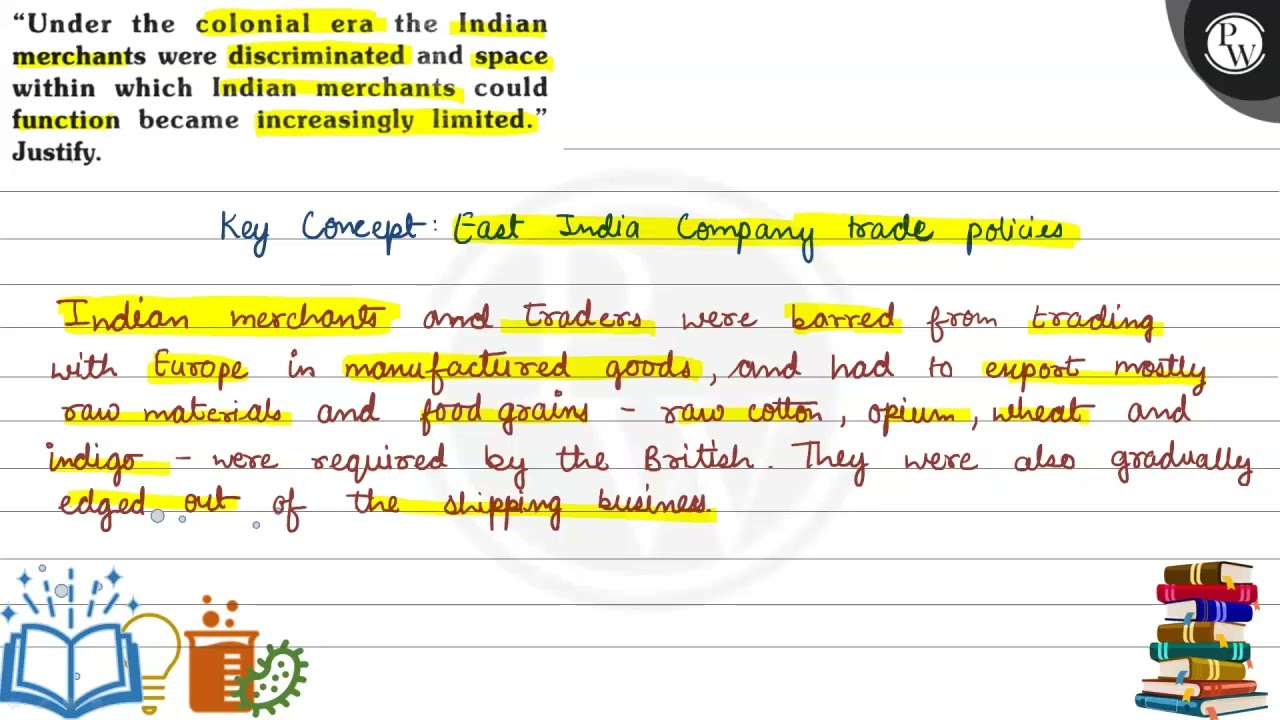 “Under the colonial era the Indian
merchants were discriminated and space
within which Indian merchants could
function became increasingly limited.”
Justify.
PW
Key Concept: East India Company trade policies
Indian merchants and traders were barred from trading
with Europe in manufactured goods, and had to export mostly
raw materials and food grains - raw cotton, opium, wheat and
indigo - were required by the British. They were also gradually
edged out of the shipping business.